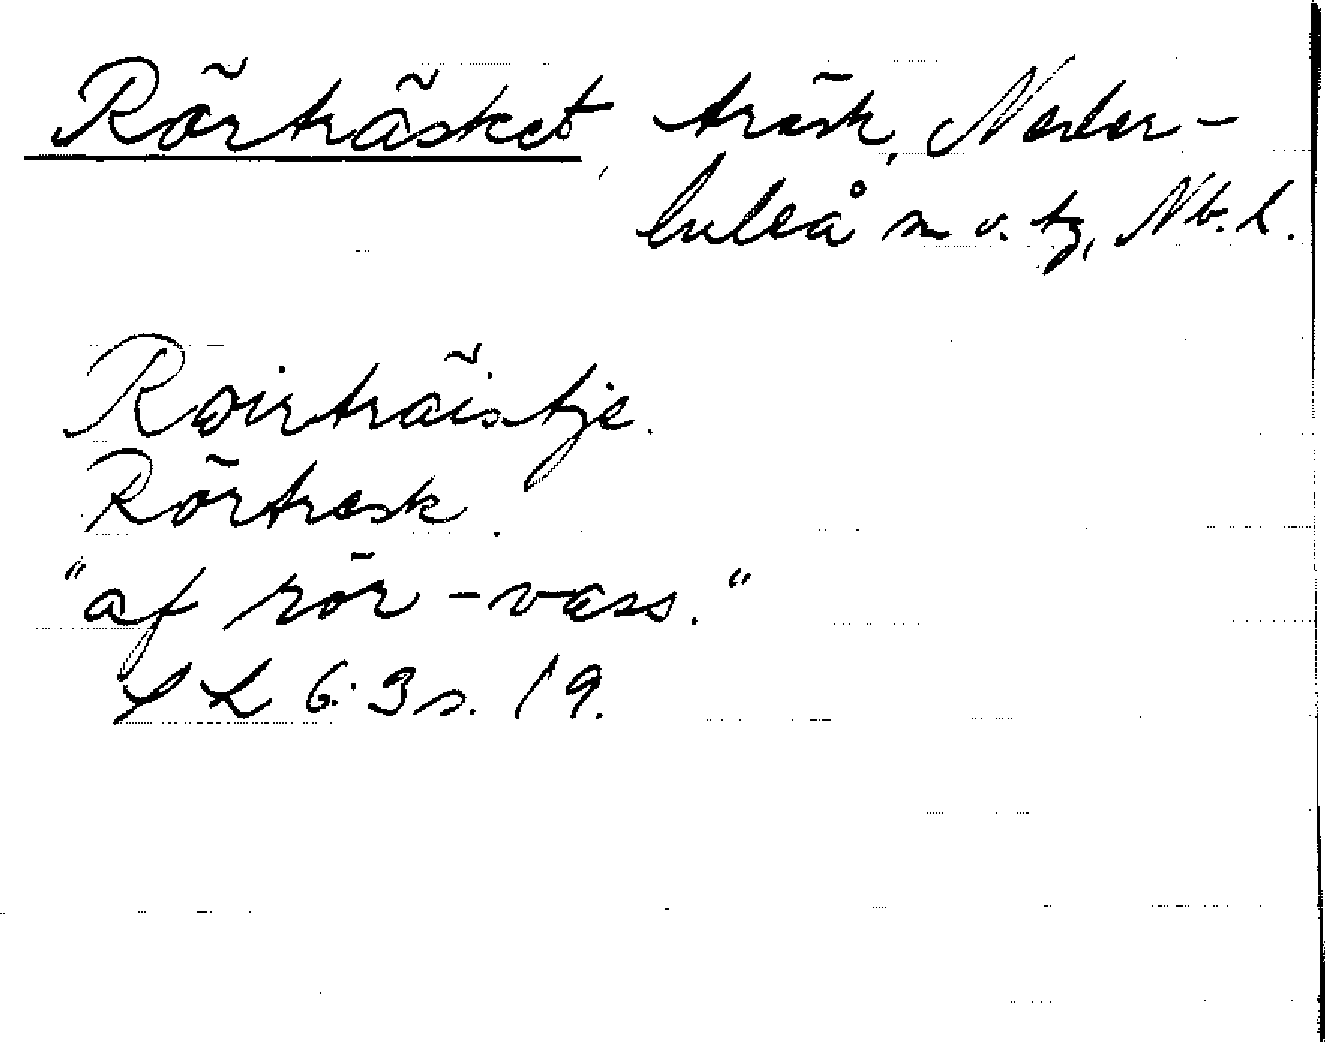 Rörträsket, träsk, Neder-
luleå sn o. tg, Nb. L.
Røirträistje.
Rörträsk.
"af rör - vass."
SL 6:3 s. 19.